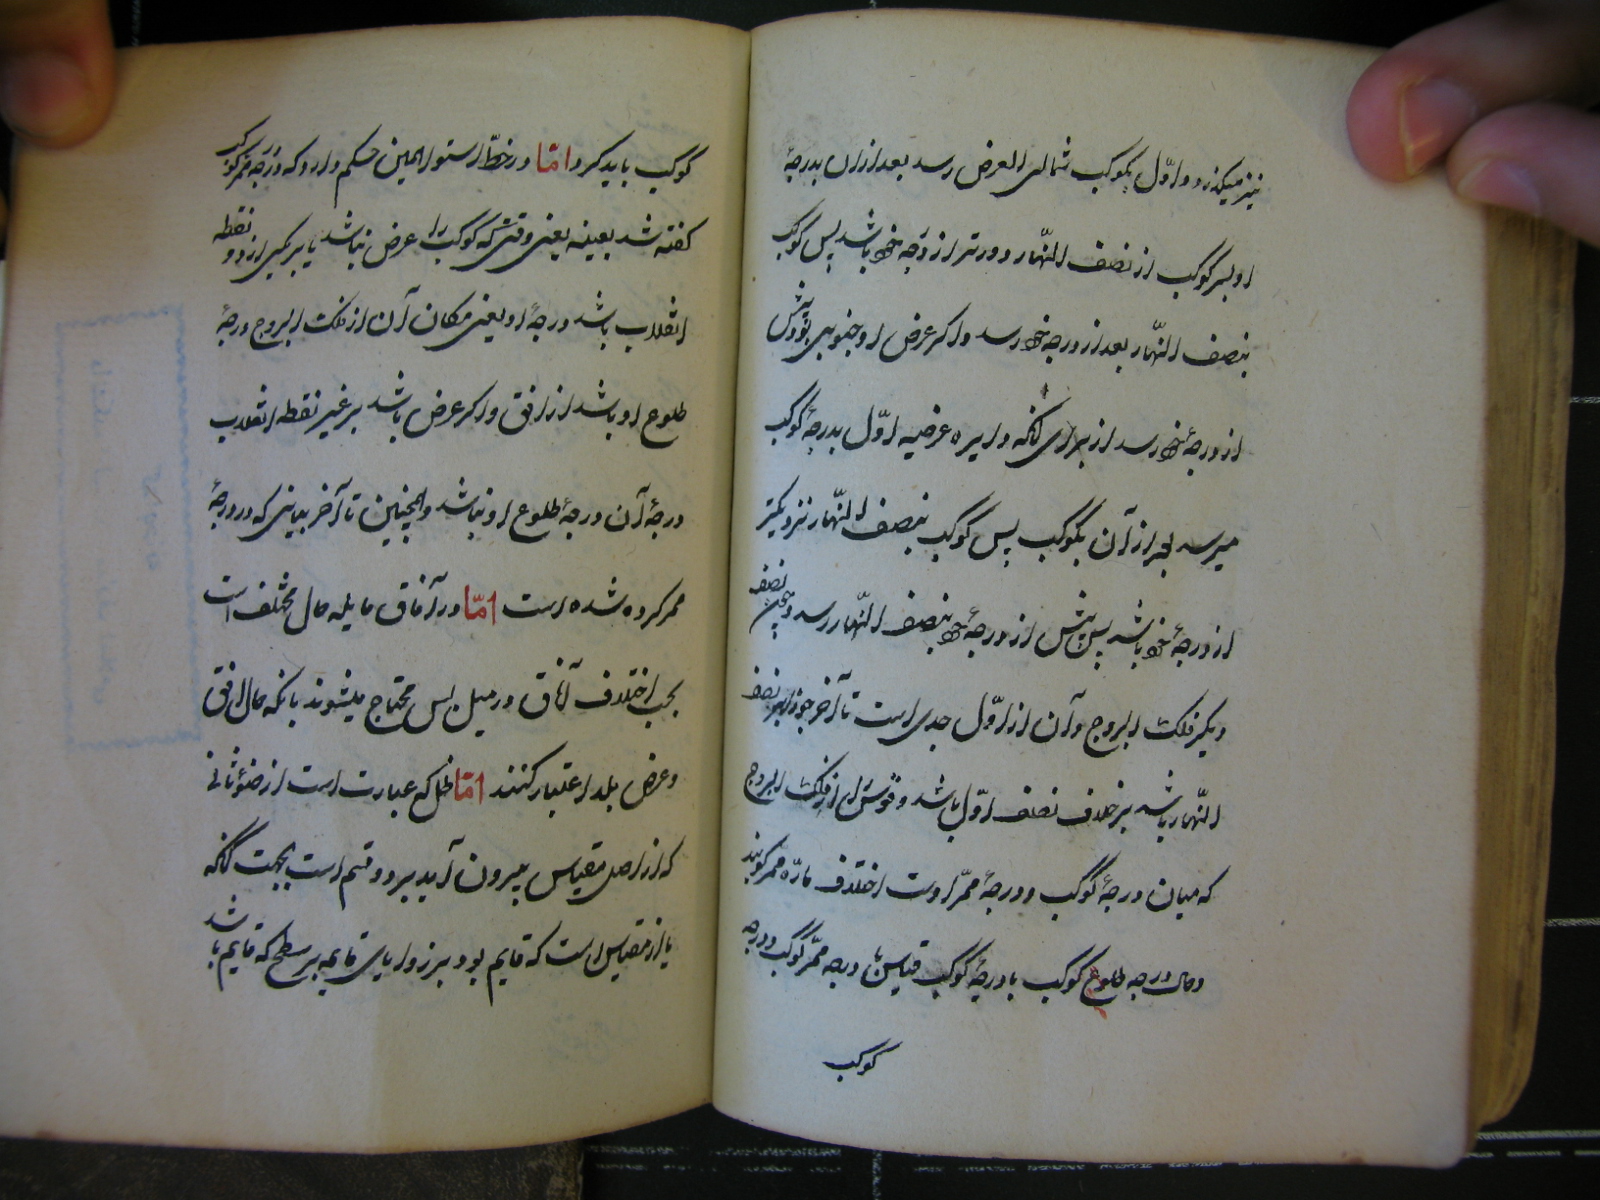 نیز میکذرد و اوّل بکوکب شمالی العرض رسد بعد از ان بدرجۀ
او پس کوکب از نصف النّهار دورتر از درجه خود باشد پس کوکب
بنصف النّهار بعد از درجه خود رسد و اکر عرض او جنوبی بود پیش
از درجۀ خود رسد از برای آنکه دایره عرضیه اوّل بدرجۀ کوکب
میرسد بعد از آن بکوکب پس کوکب بنصف النّهار نزدیکتر
از درجۀ خود باشد پس پیش از درجۀ خود بنصف النّهار رسد و همچنین نصف
دیکر فلک البروج و آن از اوّل جدی است تا آخر جوزا بر نصف
النّهار باشد بر خلاف نصف اوّل باشد و قوسی از فلک البروج
که میان درجۀ کوکب و درجۀ ممرّ اوست اختلاف ممر کویند
و حال درجه طلوع کوکب با درجۀ کوکب قیاس با درجه ممرّ کوکب و درجه
کوکب
کوکب باید کرد امّا در خطّ استوا همین حکم دارد که در درجۀ ممر کوکب
کفته شد بعینه یعنی وقتی که کوکب را عرض نباشد یا بر یکی از دو نقطه
انقلاب باشد درجۀ او یعنی مکان آن از فلک البروج درجۀ
طلوع او باشد از افق و اکر عرض باشد بر غیر نقطه انقلاب
درجۀ آن درجۀ طلوع او نباشد و همچنین تا آخر بیانی که در درجۀ
ممر کرده شده است امّا در آفاق مایله حال مختلف است
بحسب اختلاف آفاق در میل پس محتاج میشوند بانکه حال افق
و عرض بلد اعتبار کنند امّا ظل که عبارت است از ضوء ثانی
که از اصل مقیاس بیرون آید بر دو قسم است بجهت آنکه
یا از مقیاس است که قایم بود بر زوایای قایمه بر سطحی که قایم باشد